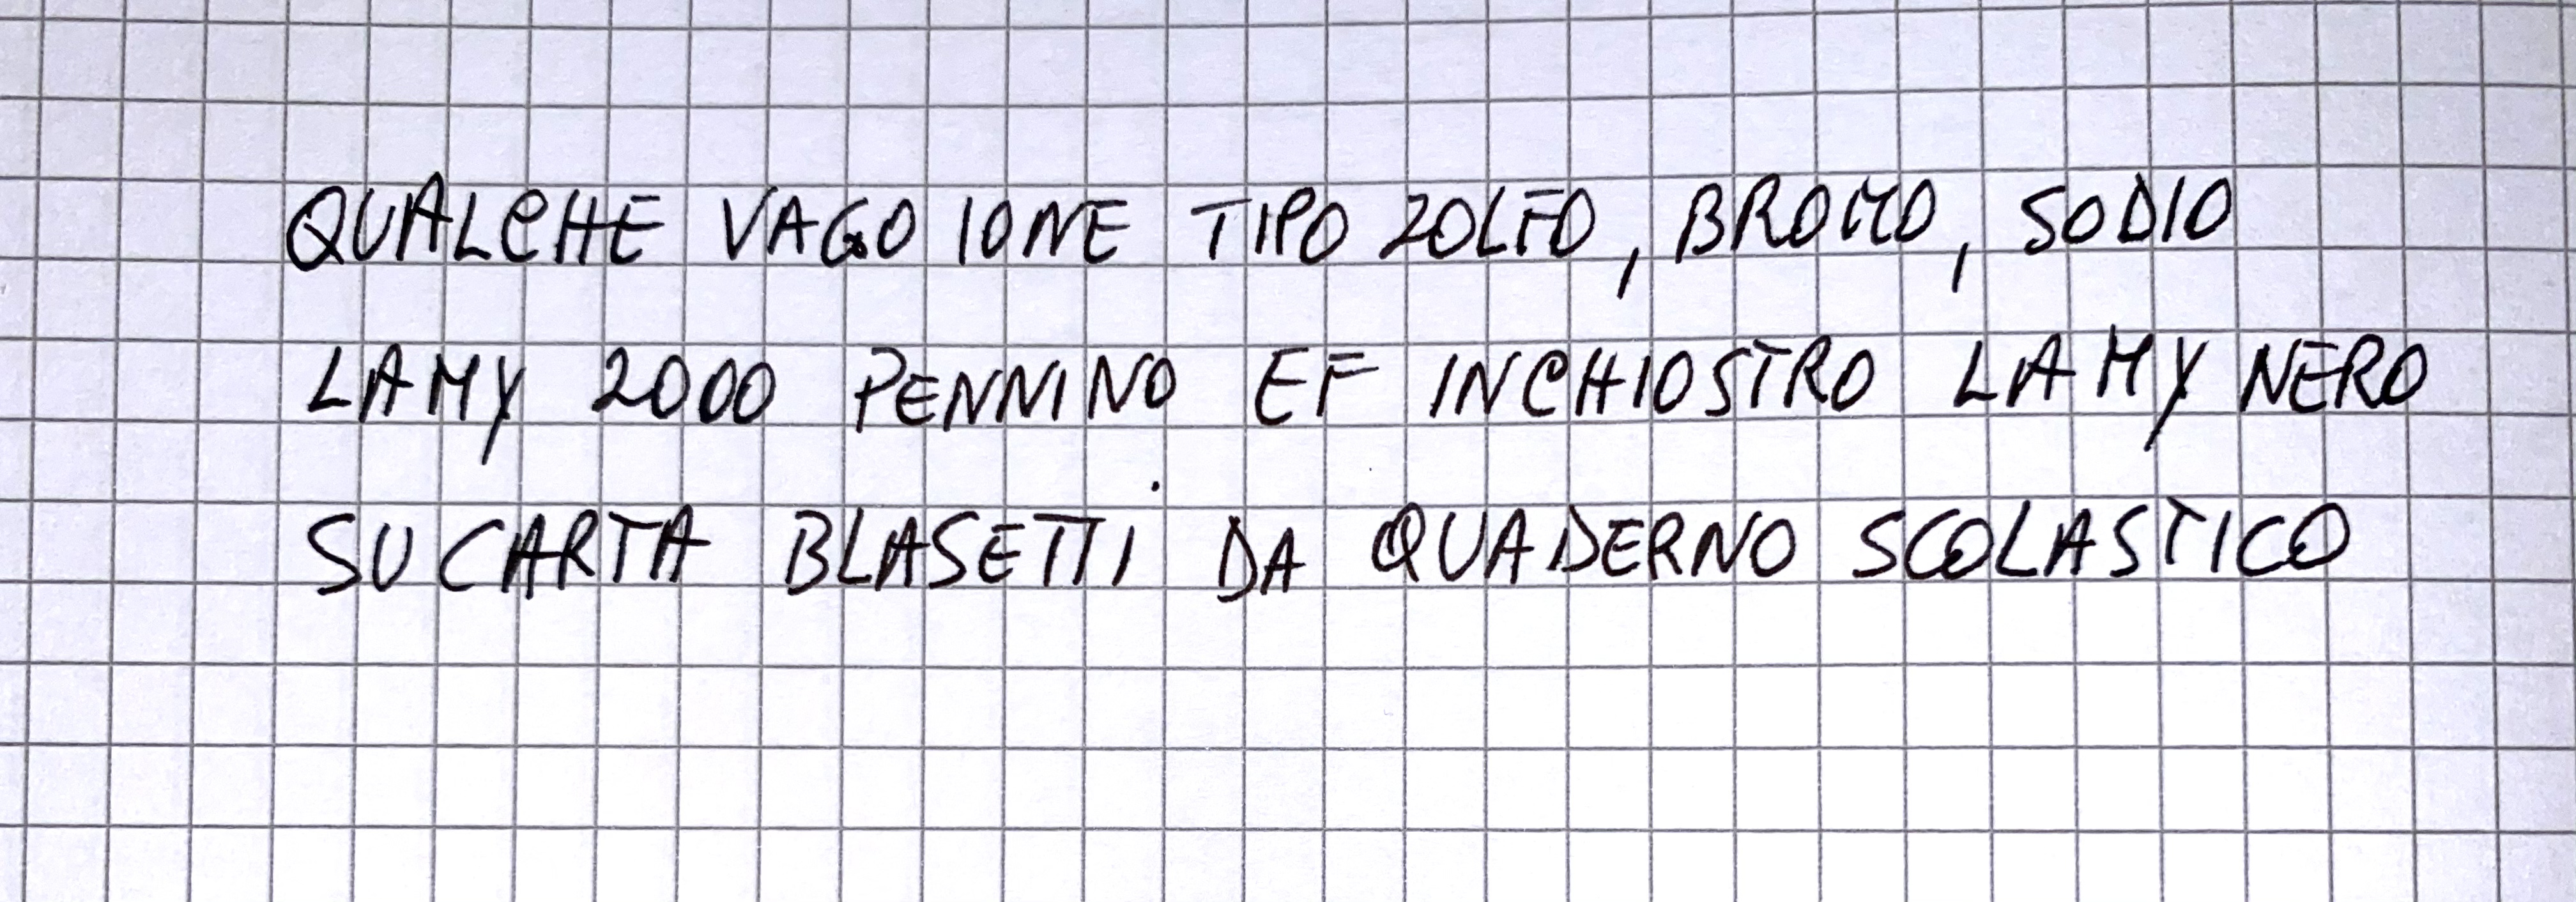 QUALCHE VAGO IONE TIPO ZOLFO, BROMO, SODIO
LAMY 2000 PENNINO EF INCHIOSTRO LAMY NERO
SU CARTA BLASETTI DA QUADERNO SCOLASTICO